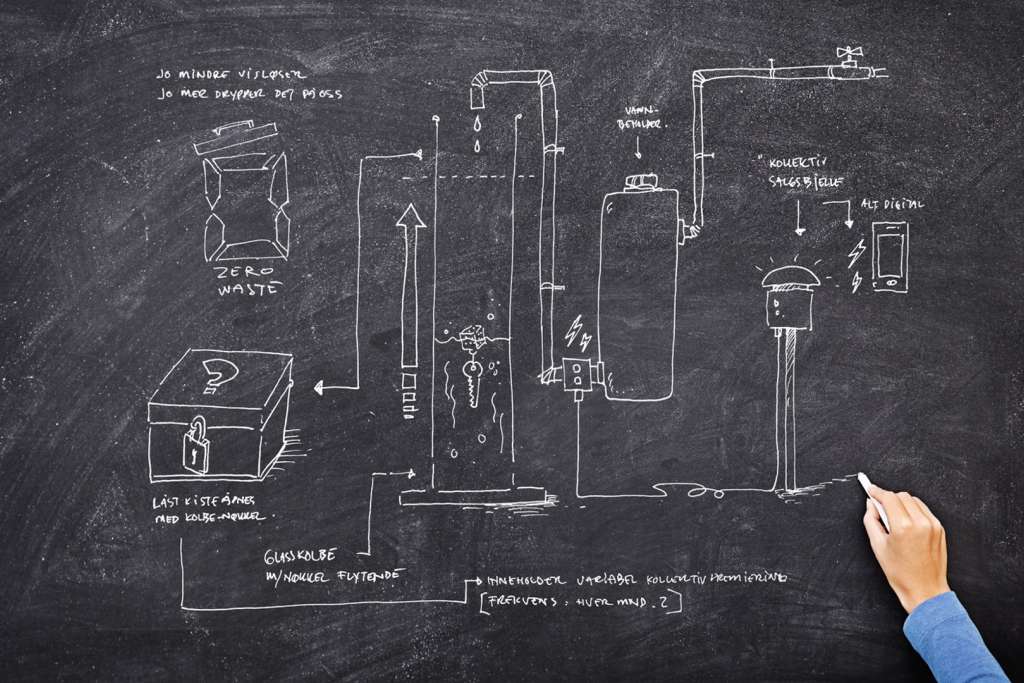 JO MINDRE VI SLØSER
JO MER DRYPPER DET PÅ OSS
ZERO
WASTE
VANN-
BEHOLDER.
"KOLLEKTIV
SALGSBJELLE
ALT DIGITAL
?
LÅST KISTE ÅPNES
MED KOLBE-NØKKEL.
GLASSKOLBE
M/NØKKEL FLYTENDE
INNEHOLDER VARIABEL KOLLEKTIV PREMIERING
[FREKVENS: HVER MND.?]